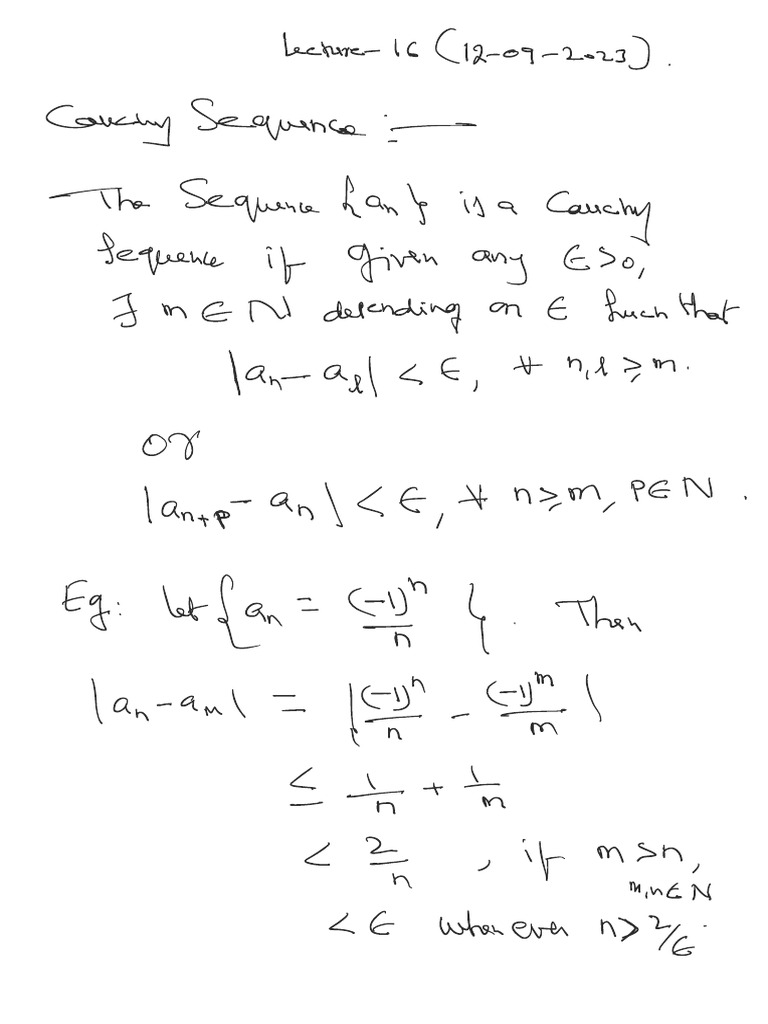 Lecture-16 (12-09-2023).
Cauchy Sequence :—
The Sequence {an} is a Cauchy
Sequence if given any ϵ>0,
∃ m ∈ N depending on ϵ such that
|aₙ - aₗ| < ϵ, ∀ n,l ≥ m.
or
|aₙ₊ₚ - aₙ| < ϵ, ∀ n ≥ m, P∈N.
Eg: let {aₙ = (-1)ⁿ/n}. Then
|aₙ - aₘ| = |(-1)ⁿ/n - (-1)ᵐ/m|
≤ 1/n + 1/m
< 2/n, if m>n,
m,n∈N
< ϵ whenever n> 2/ϵ.